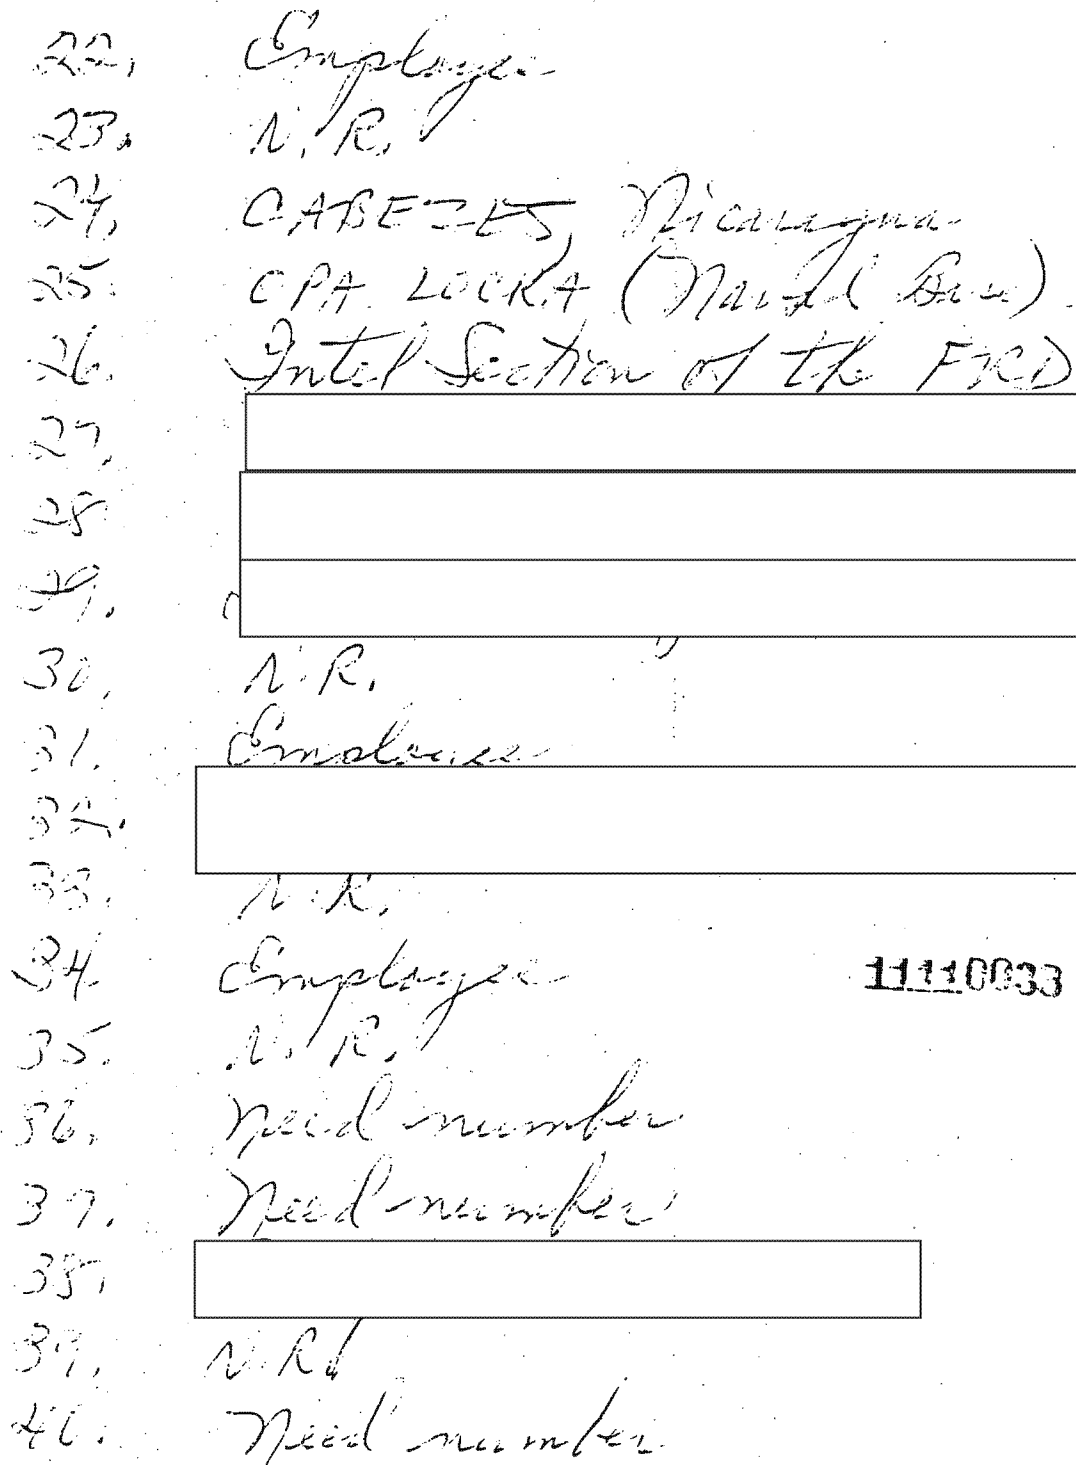 22. Employee
23. N.R.
24. CABEZES, Nicaragua
25. OPA LOCKA (Naval Base).
26. Intel Section of the FRD
27.
28
29.
30. N.R.
31. Employee
32.
33. N.R.
34. Employee
11110033
35. N.R.
36. Need number
37. Need number
38.
39. N.R.
40. Need number